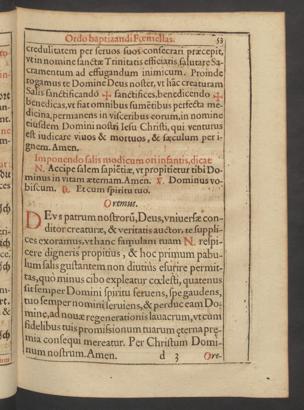 Ordo baptizandi Fœmellas. 53
credulitatem per seruos suos consecrari præcepit,
vt in nomine sanctæ Trinitatis efficiaris salutare Sa-
cramentum ad effugandum inimicum. Proinde
rogamus te Domine Deus noster, vt hãc creaturam
Salis sanctificando ✠ sanctifices, benedicendo ✠
benedicas, vt fiat omnibus sumẽtibus perfecta me-
dicina, permanens in visceribus eorum, in nomine
eiusdem Domini nostri Iesu Christi, qui venturus
est iudicare viuos & mortuos, & sæculum per i-
gnem. Amen.
Imponendo salis modicum ori infantis, dicat
N. Accipe salem sapiẽtiæ, vt propitietur tibi Do-
minus in vitam æternam. Amen. ℣. Dominus vo-
biscum. ℟. Et cum spiritu tuo.
Oremus.
DEvs patrum nostrorũ, Deus, vniuersæ con-
ditor creaturæ, & veritatis auctor, te suppli-
ces exoramus, vt hanc famulam tuam N. respi-
cere digneris propitius, & hoc primum pabu-
lum salis gustantem non diutiùs esurire permit-
tas, quò minus cibo expleatur cœlesti, quatenus
sit semper Domini spiritu feruens, spe gaudens,
tuo semper nomini seruiens, & perduc eam Do-
mine, ad nouæ regenerationis lauacrum, vt cum
fidelibus tuis promissionum tuarum æterna præ-
mia consequi mereatur. Per Christum Domi-
num nostrum. Amen.
d 3 Ore-